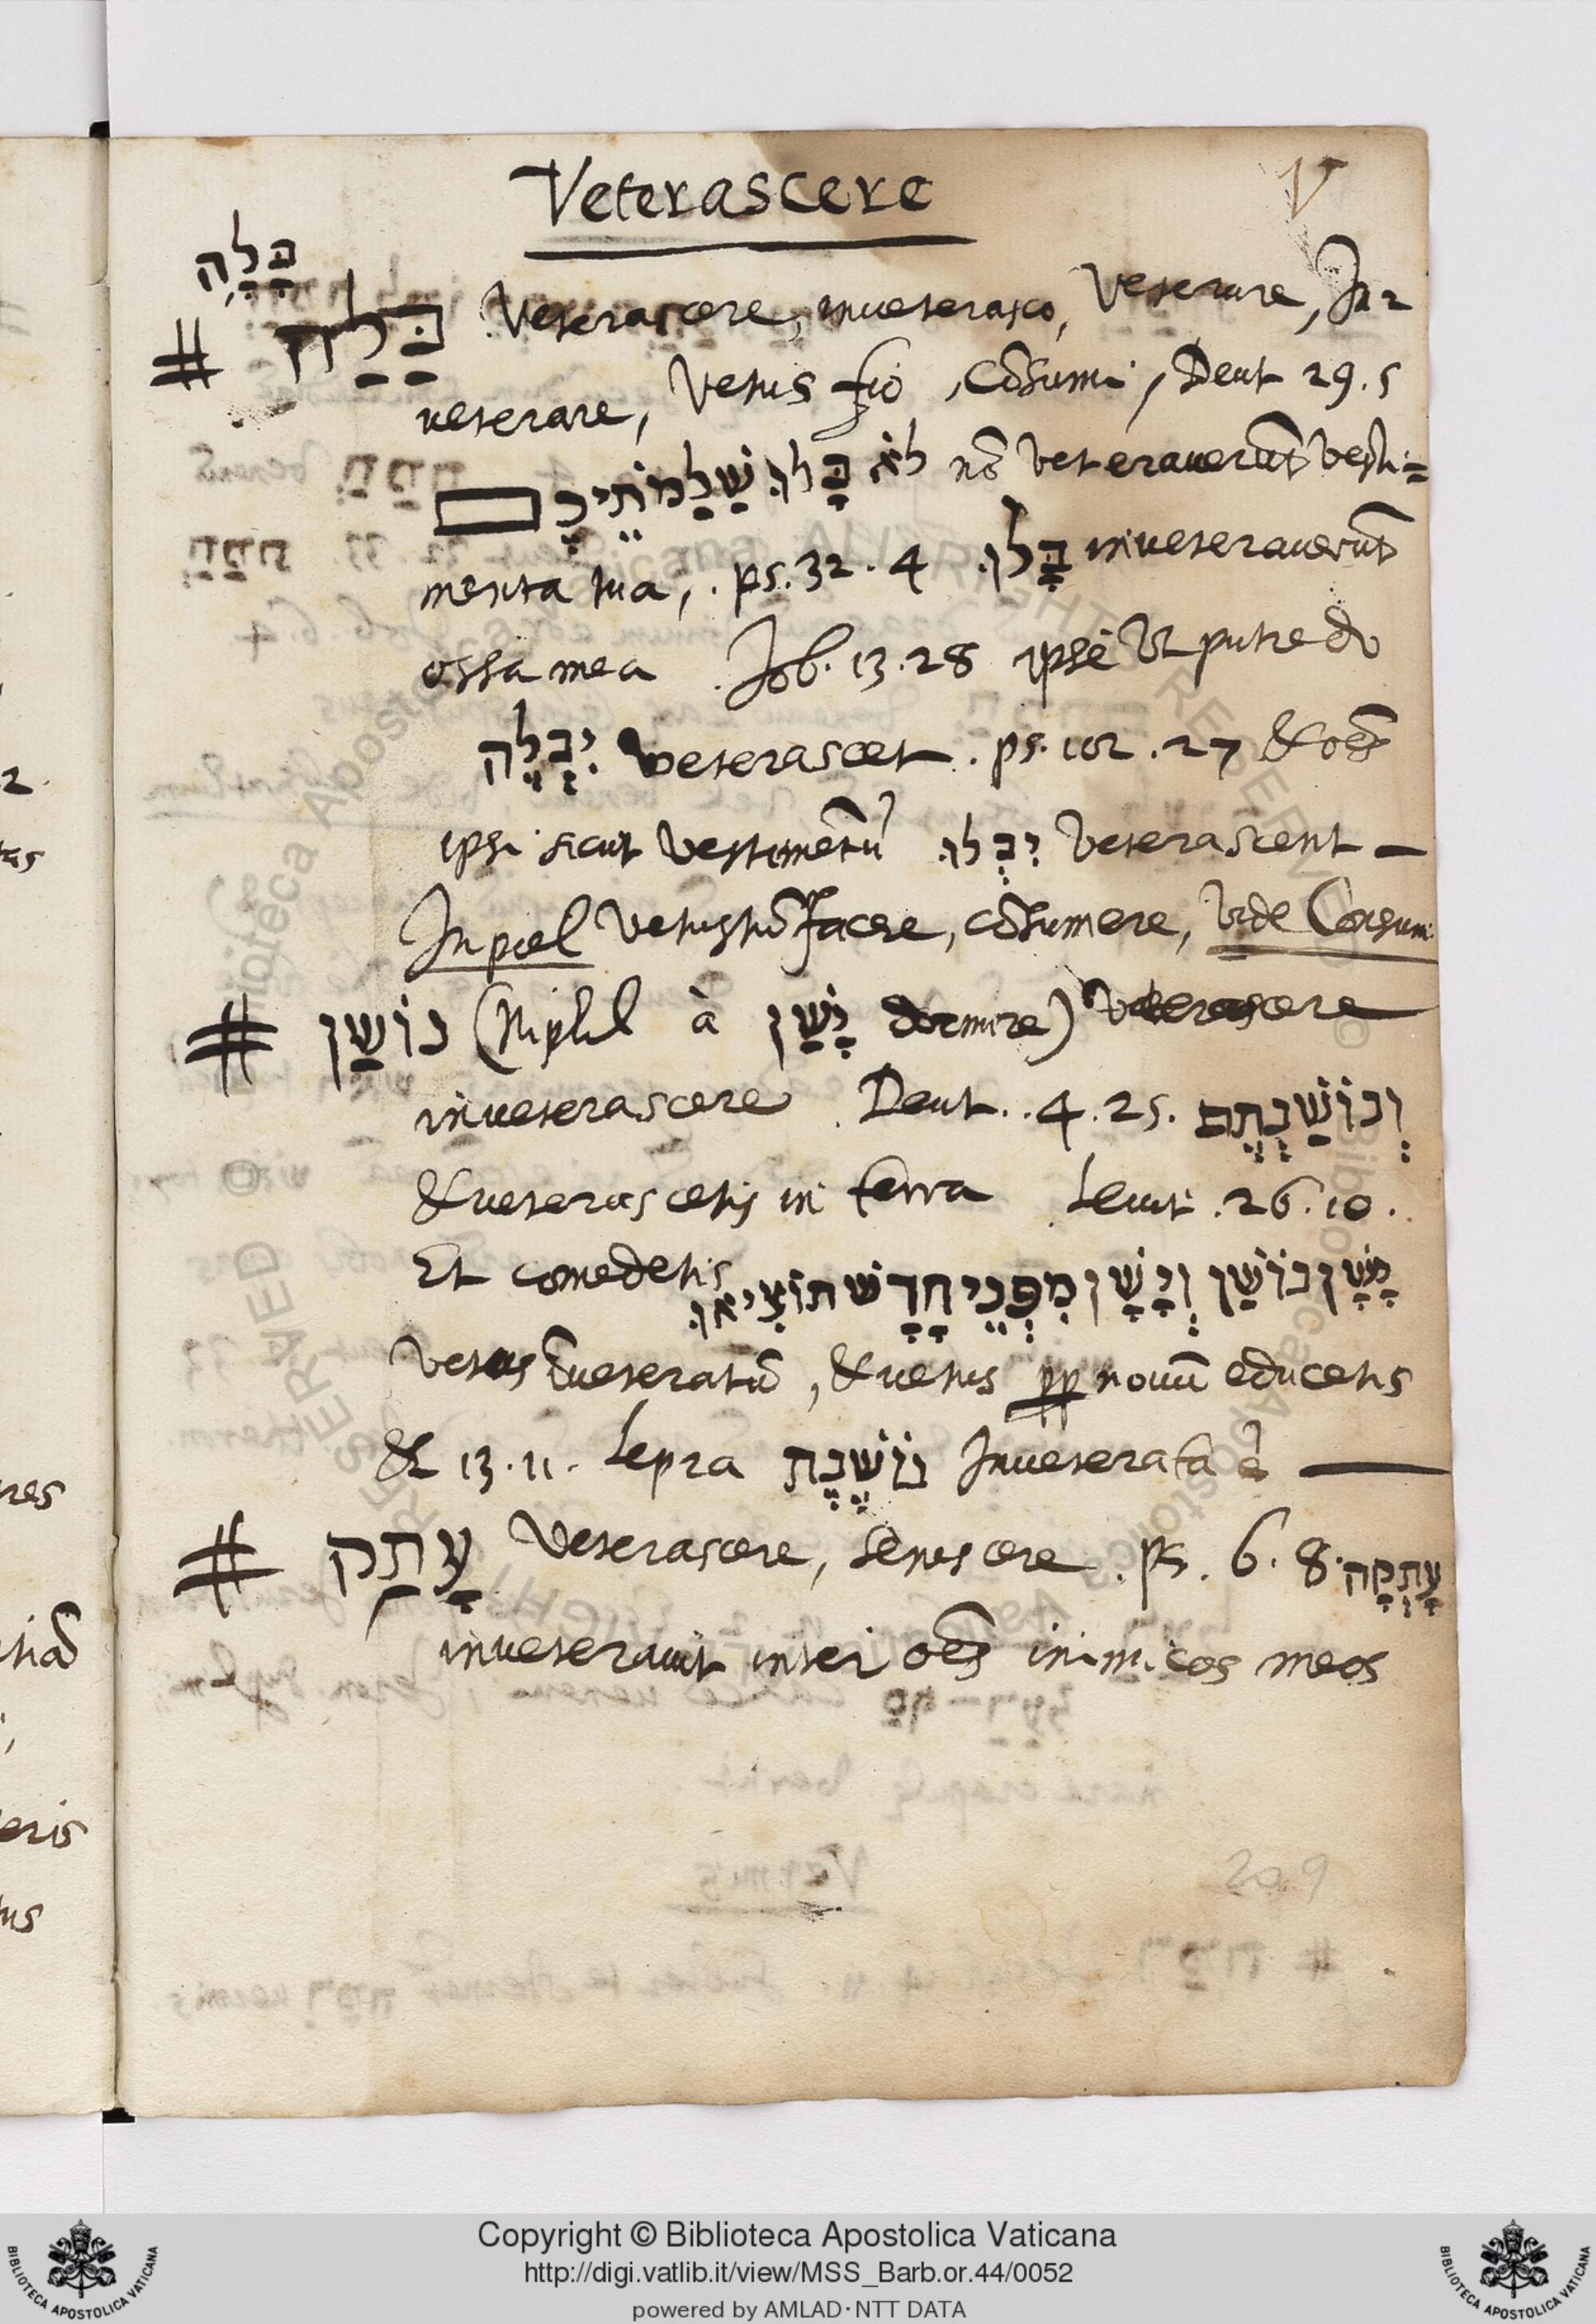 Veterascere
V
בָּלָה
# בַּלַּה Veterascere, inueterasco, Veterare, In2
ueterare, Vetus fio, Cōsumi, Deut 29.5
לֹא בָּלוּ שַׂלְמֹתֵיכֶם nō veterauerūt vesti=
menta tua, . ps. 32. 4 בָּלוּ inueterauerūt
ossa mea . Job. 13. 28 ipse Vt putredo
יִבְלֶה veterascet . ps. 102 . 27 & oēs
ipsi sicut vestimētū יִבְלוּ veterascent —
In piel Vetustū facere, cōsumere, vide Consum
# נוֹשַׁן (Niphl à יָשַׁן dormire) Veterascere
inueterascere . Deut. . 4. 25. וְנוֹשַׁנְתֶּם
& ueterascetis in terra Leuit . 26. 10.
Et comedetis יָשָׁן נוֹשָׁן וְיָשָׁן מִפְּנֵי חָדָשׁ תּוֹצִיאוּ
vetus īueteratū, & uetus pp nouū educetis
& 13. 11. Lepra נוֹשֶׁנֶת Inueterata ē —
# עָתַק Veterascere, senescere . ps. 6. 8. עָתְקָה
inueterauit inter oēs inimicos meos
209
Copyright © Biblioteca Apostolica Vaticana
http://digi.vatlib.it/view/MSS_Barb.or.44/0052
powered by AMLAD·NTT DATA
BIBLIOTECA APOSTOLICA VATICANA
BIBLIOTECA APOSTOLICA VATICANA